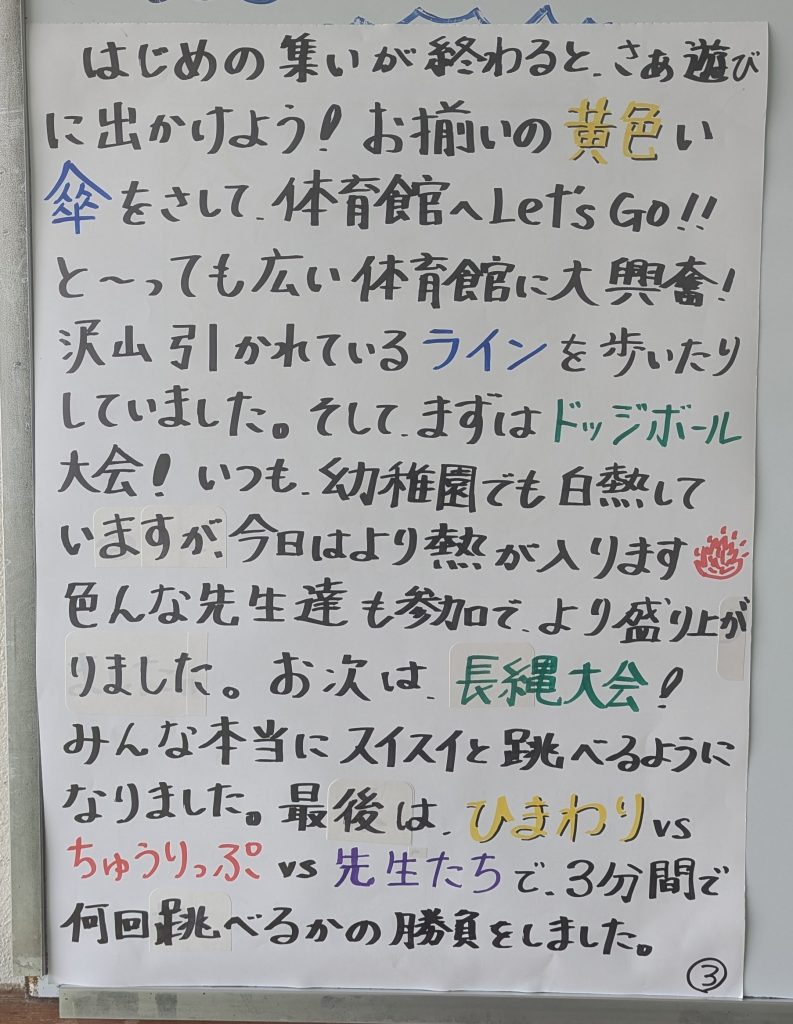 はじめの集いが終わると、さぁ遊び
に出かけよう！お揃いの黄色い
傘をさして、体育館へLet's Go!!
と〜っても広い体育館に大興奮！
沢山引かれているラインを歩いたり
していました。そして、まずはドッジボール
大会！いつも、幼稚園でも白熱して
いますが、今日はより熱が入ります
色んな先生達も参加で、より盛り上が
りました。お次は、長縄大会！
みんな本当にスイスイと跳べるように
なりました。最後は、ひまわりvs
ちゅうりっぷvs先生たちで、3分間で
何回跳べるかの勝負をしました。
③